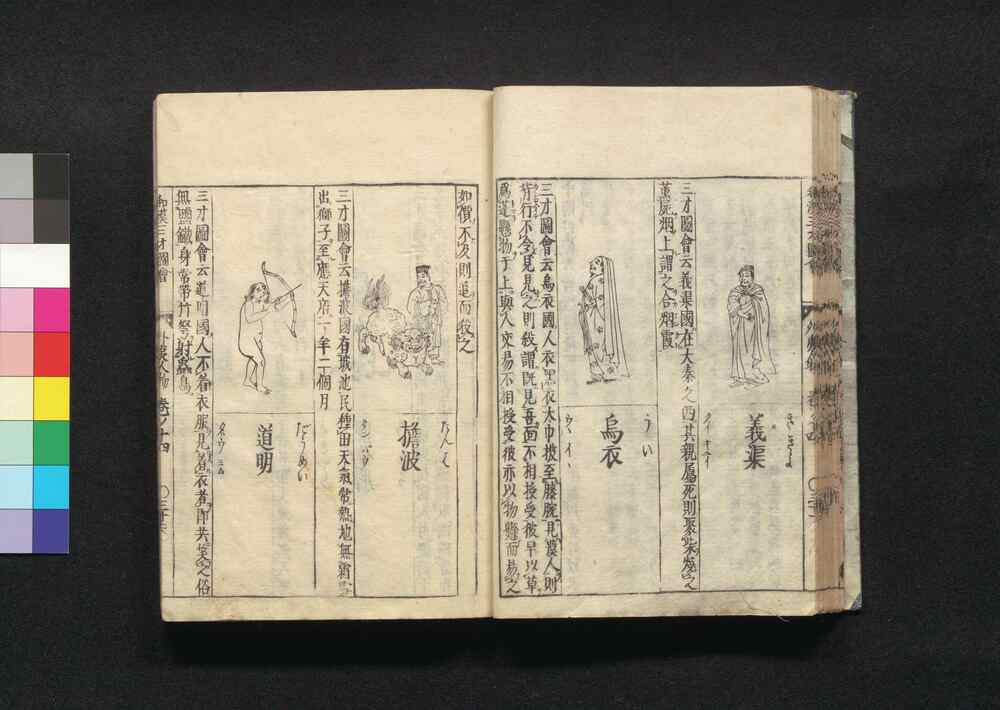 義渠
三才圖會云義渠國在大秦之西其親屬死則聚柴燒之
薰屍烟上謂之合烟霞
烏衣
うい
三才圖會云烏衣國人衣黑衣大巾披至膝腕見農人則
背行不令見見之則殺謂既見吾面不相授受彼早以草
爲道懸物于上與人交易不相授受彼亦以物懸而易之
如價不及則追而殺之
擔波
三才圖會云擔波國有城池民種田天氣常熱地無霜雪
出獅子至應天府二十年二个月
道明
だうめい
三才圖會云道明國人不着衣服見著衣者即共笑之俗
無鹽鐵身常帶竹弩射蟲鳥
和漢三才圖會
外夷人物
卷ノ十四